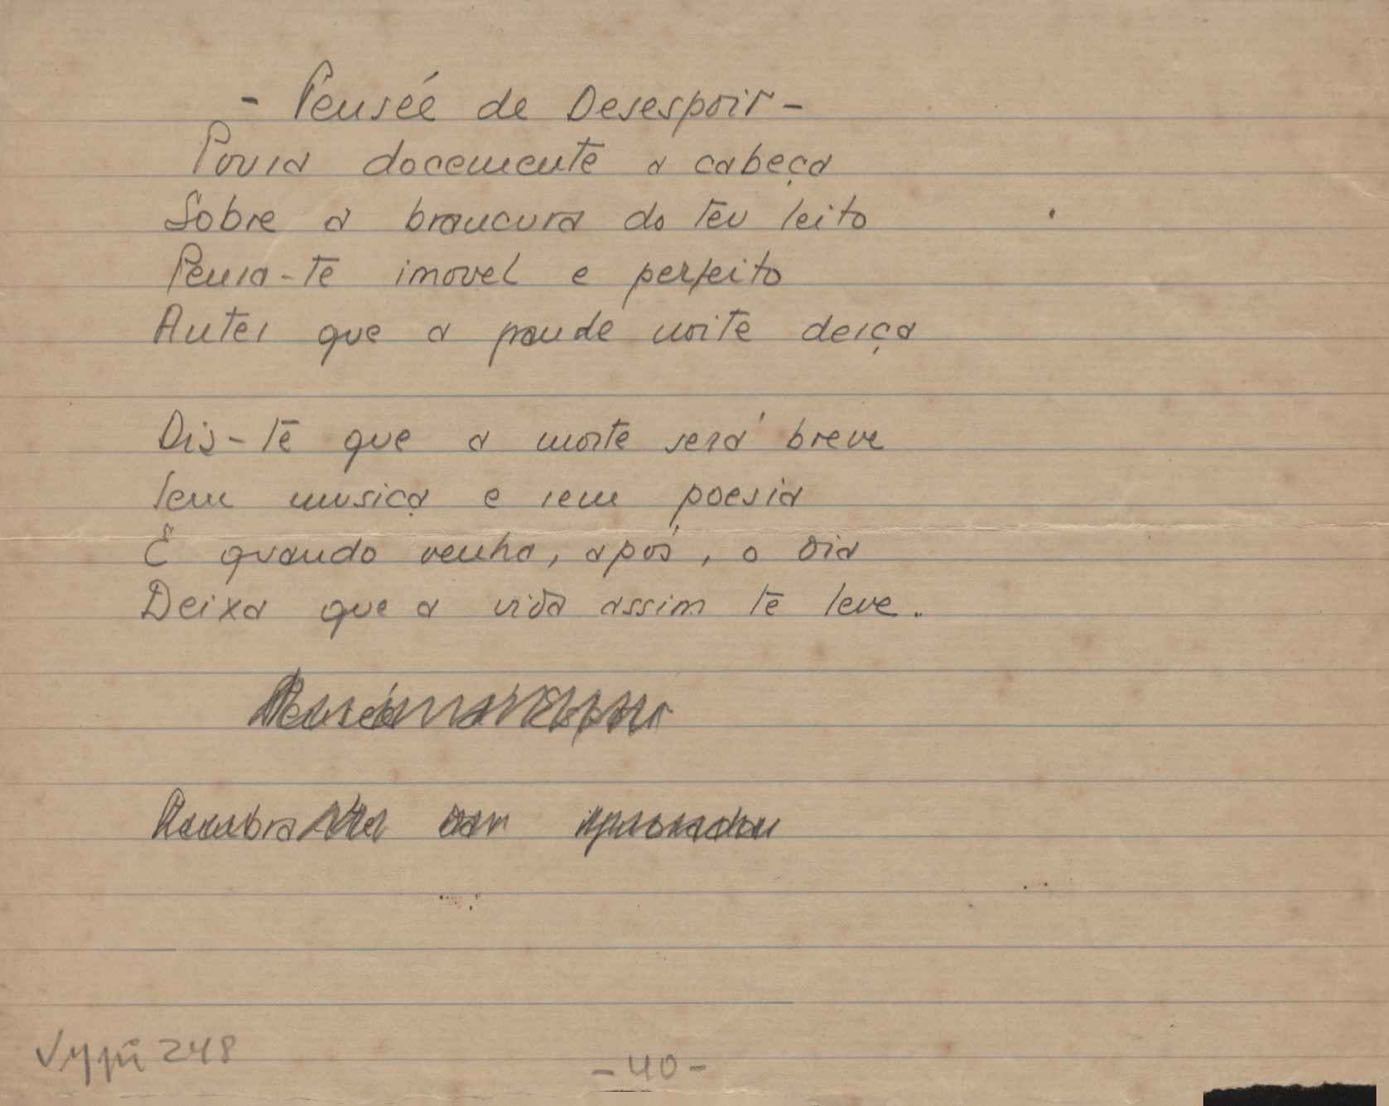 - Pensée de Desespoir -
Pousa docemente a cabeça
Sobre a brancura do teu leito
Pensa-te imovel e perfeito
Antes que a grande noite desça
Dis-te que a morte será breve
Sem musica e sem poesia
E quando venha, após, o dia
Deixa que a vida assim te leve.
Vypii 248
- 40 -